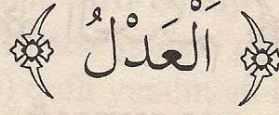 اَلْعَدْلُ